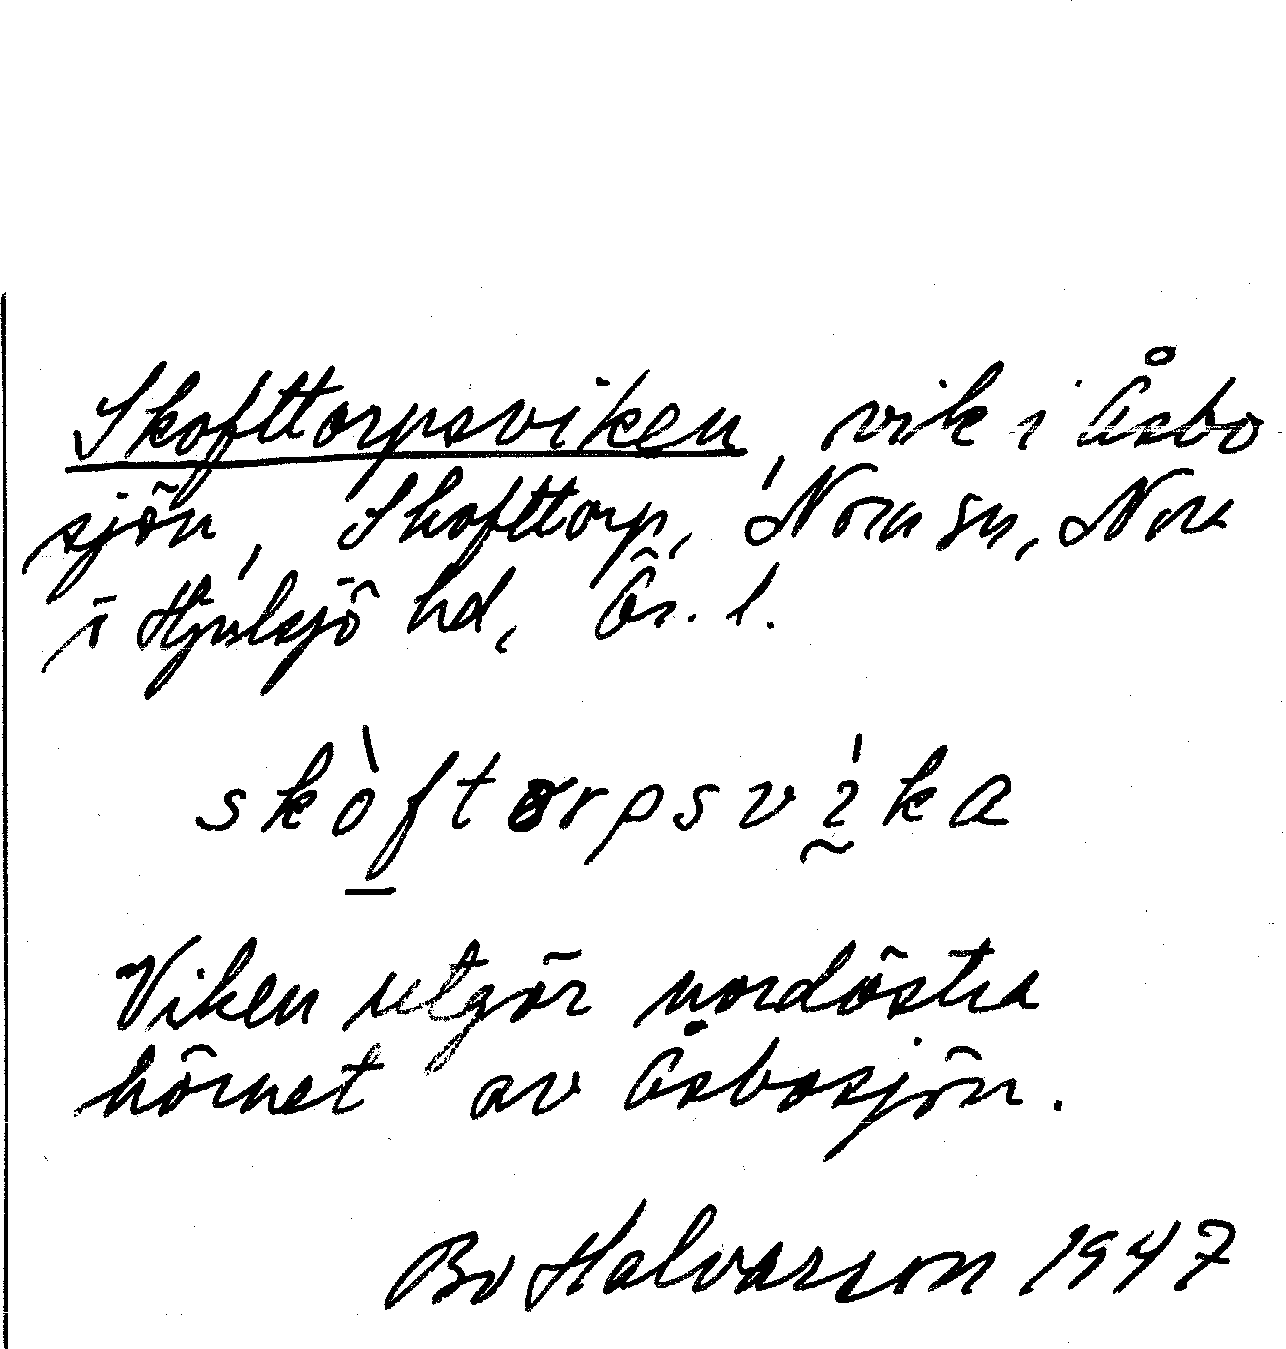 Skofttorpsviken, vik i Åsbo
sjön, Skofttorp, Nora sn, Nora
i Hjulsjö hd, Ör. l.
skòftorpsvíka
Viken utgör nordöstra
hörnet av Åsbosjön.
Bo Halvarsson 1947